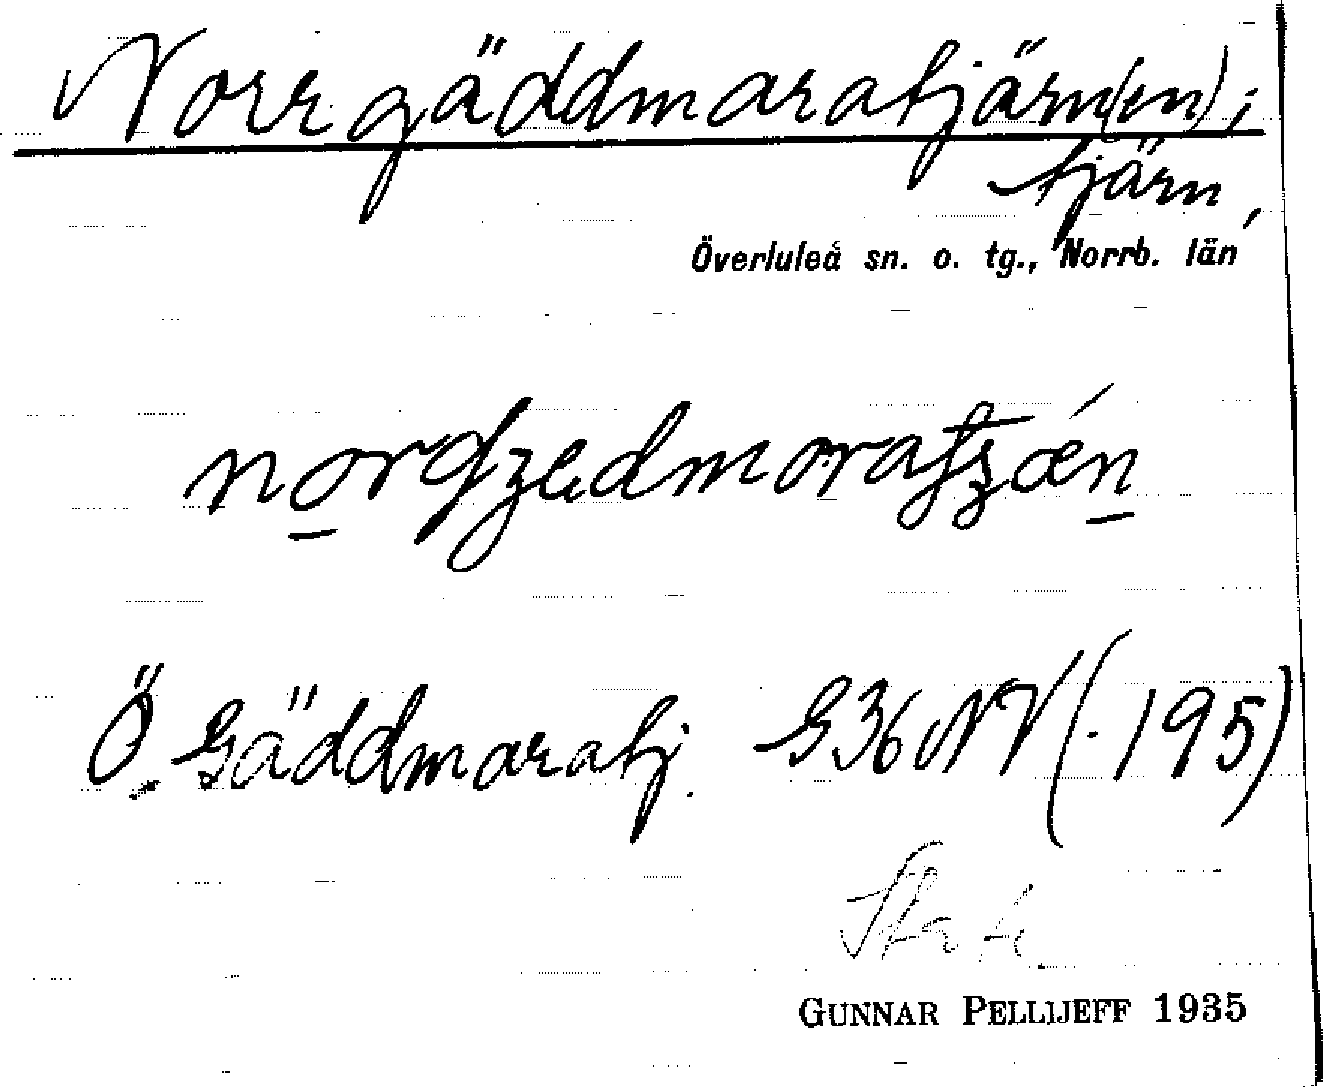 Norrgäddmaratjärn(en);
tjärn,
Överluleå sn. o. tg., Norrb. län
Ö. Gäddmaratj. G36NV (-195)
GUNNAR PELLIJEFF 1935